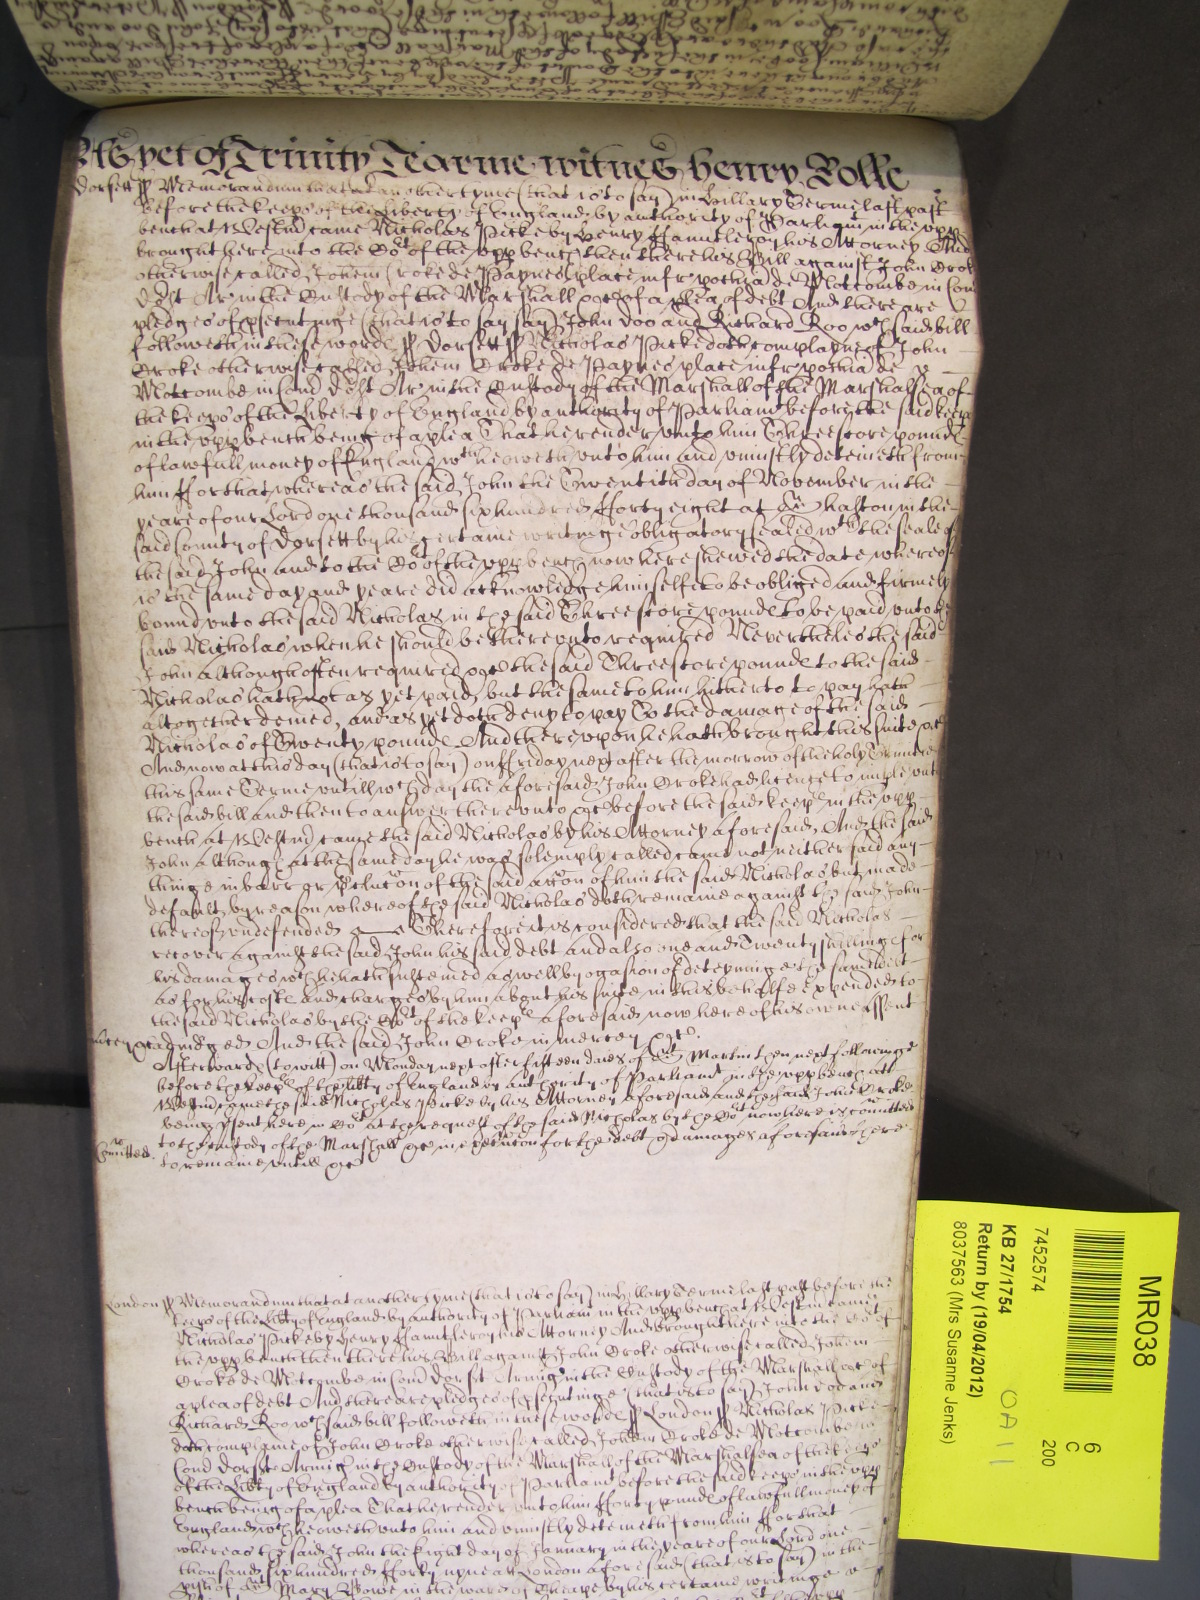 As yet of Trinity Tearme witnes Henry Rolle
Dorsett ss Memorandum that at another tyme (that is to say) in Hillary Terme last past
before the keeps of the Liberty of England by authority of Parliam in the upp
bench at Westm came Nicholas Picke by Henry Hauntleroy his Attorney And
brought here into the Cot of the upp bench then there his Bill against John Croke
otherwise called Johem Croke de Paynes place infr pochia de Motcombe in Com
Dorst Ar in the Custody of the Marshall &c of a plea of debt And there are
pledges of psecutinge (that is to say say) John Doo and Richard Roo wch said bill
followeth in these words ss Dorsett ss Nicholas Picke doth complayne of John
Croke otherwise called Johem Croke de Paynes place infr pochia de
Motcombe in Com Dorst Ar in the Custody of the Marshall of the Marshalsea of
the keeps of the Liberty of England by authority of Parliamt before the said keeps
in the upp bench being of a plea That he render unto him Threescore pounds
of lawfull money of England wch he oweth unto him and uniustly deteineth from
him Ffor that whereas the said John the Twentith day of November in the
yeare of our Lord one thousand six hundred fforty eight at Shaston in the
said County of Dorsett by his certaine writinge obligatory sealed wth the seale of
the said John and to the Cot of the upp bench now here shewed the date whereof
is the same day and yeare did acknowledge himselfe to be obliged and firmely
bound unto the said Nicholas in the said Threescore pounds to be paid unto the
said Nicholas when he should be thereunto required Nevertheles the said
John although often required &c the said Threescore pounds to the said
Nicholas hath not as yet paid, but the same to him hitherto to pay hath
altogether denied, and as yet doth deny to pay To the damage of the said
Nicholas of Twenty pounds And thereupon he hath brought this suite &c
And now at this day (that is to say) on ffriday next after the morrow of the holy Trinitie
this same Terme untill wch day the aforesaid John Croke had licence to imple unto
the said bill and then to answer thereunto &c before the said keeps in the upp
bench at Westm came the said Nicholas by his Attorney aforesaid, And the said
John although at the same day he was solemply called came not neither said any
thinge in barr or pclucon of the said accon of him the said Nicholas but made
default, by reason whereof the said Nicholas doth remaine against the said John
thereof undefended Therefore it is considered that the said Nicholas
recover against the said John his said debt and also one and Twenty shillings for
his damages wch he hath susteined aswell by ogasion of deteyninge the same debt
as for his costs and charges by him about his suite in this behalfe expended to
the said Nicholas by the Cot of the keeps aforesaid now here of his owne assent
adiudged And the said John Croke in mercy &c
Afterwards (to witt) on Monday next after fifteen daies of St Martin then next followinge
before the keeps of the libty of England by authority of Parliamt in the upp bench att
Westm came the said Nicholas Picke by his Attorney aforesaid and the said John Croke
being psent here in Cot at the request of the said Nicholas by the Cot now here is comitted
Comittr to the custody of the Marshall &c in execucon for the debt & damages aforesaid there
to remaine untill &c
London ss Memorandum that at another tyme (that is to say) in Hillary Terme last past before the
keeps of the Libty of England by authority of Parliam in the upp bench at Westm came
Nicholas Picke by Henry Hauntleroy his Attorney And brought here into the Cot of
the upp bench then there his Bill against John Croke otherwise called Johem
Croke de Motcombe in Com Dorst Armig in the Custody of the Marshall &c of
a plea of debt And there are pledges of psecutinge (that is to say) John Doo and
Richard Roo wch said bill followeth in these words ss London ss Nicholas Picke
doth complaine of John Croke otherwise called Johem Croke de Motcombe in
Com Dorst Armig in the Custody of the Marshall of the Marshalsea of the keeps
of the Libty of England by authority of Parliamt before the said keeps in the upp
bench being of a plea That he render unto him fforty pounds of lawfull money of
England wch he oweth unto him and uniustly deteineth from him Ffor that
whereas the said John the Eight day of January in the yeare of our Lord one
thousand six hundred fforty nyne at London aforesaid (that is to say) in the
pish of St Mary Bowe in the ward of Cheape by his certaine writinge
MR038
7452574
KB 27/1754
Return by (19/04/2012)
8037563 (Mrs Susanne Jenks)
6
C
200
OA 11